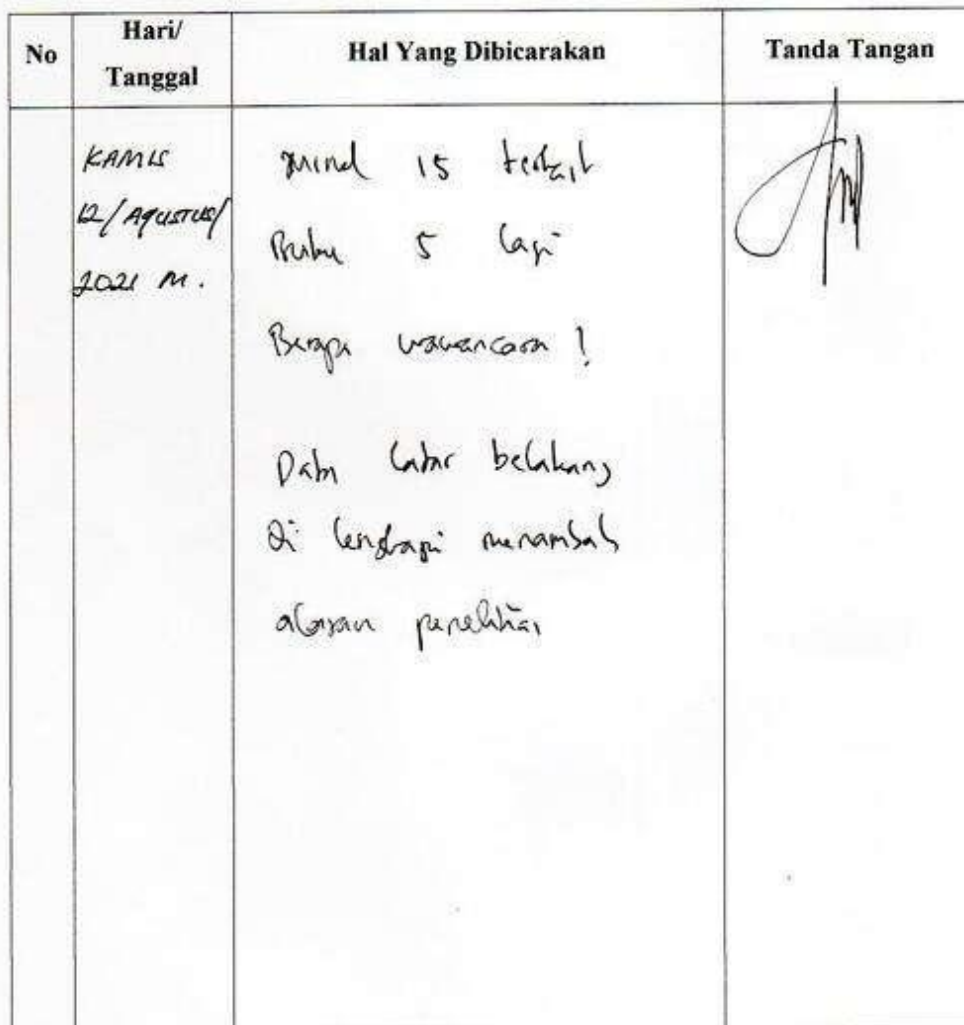 No
Hari/
Tanggal
Hal Yang Dibicarakan
Tanda Tangan
KAMIS
12/AGUSTUS/
2021 M.
15 terkait
Buku 5 lagi
Berapa wawancara !
Data latar belakang
di lengkapi menambah
alasan penelitian